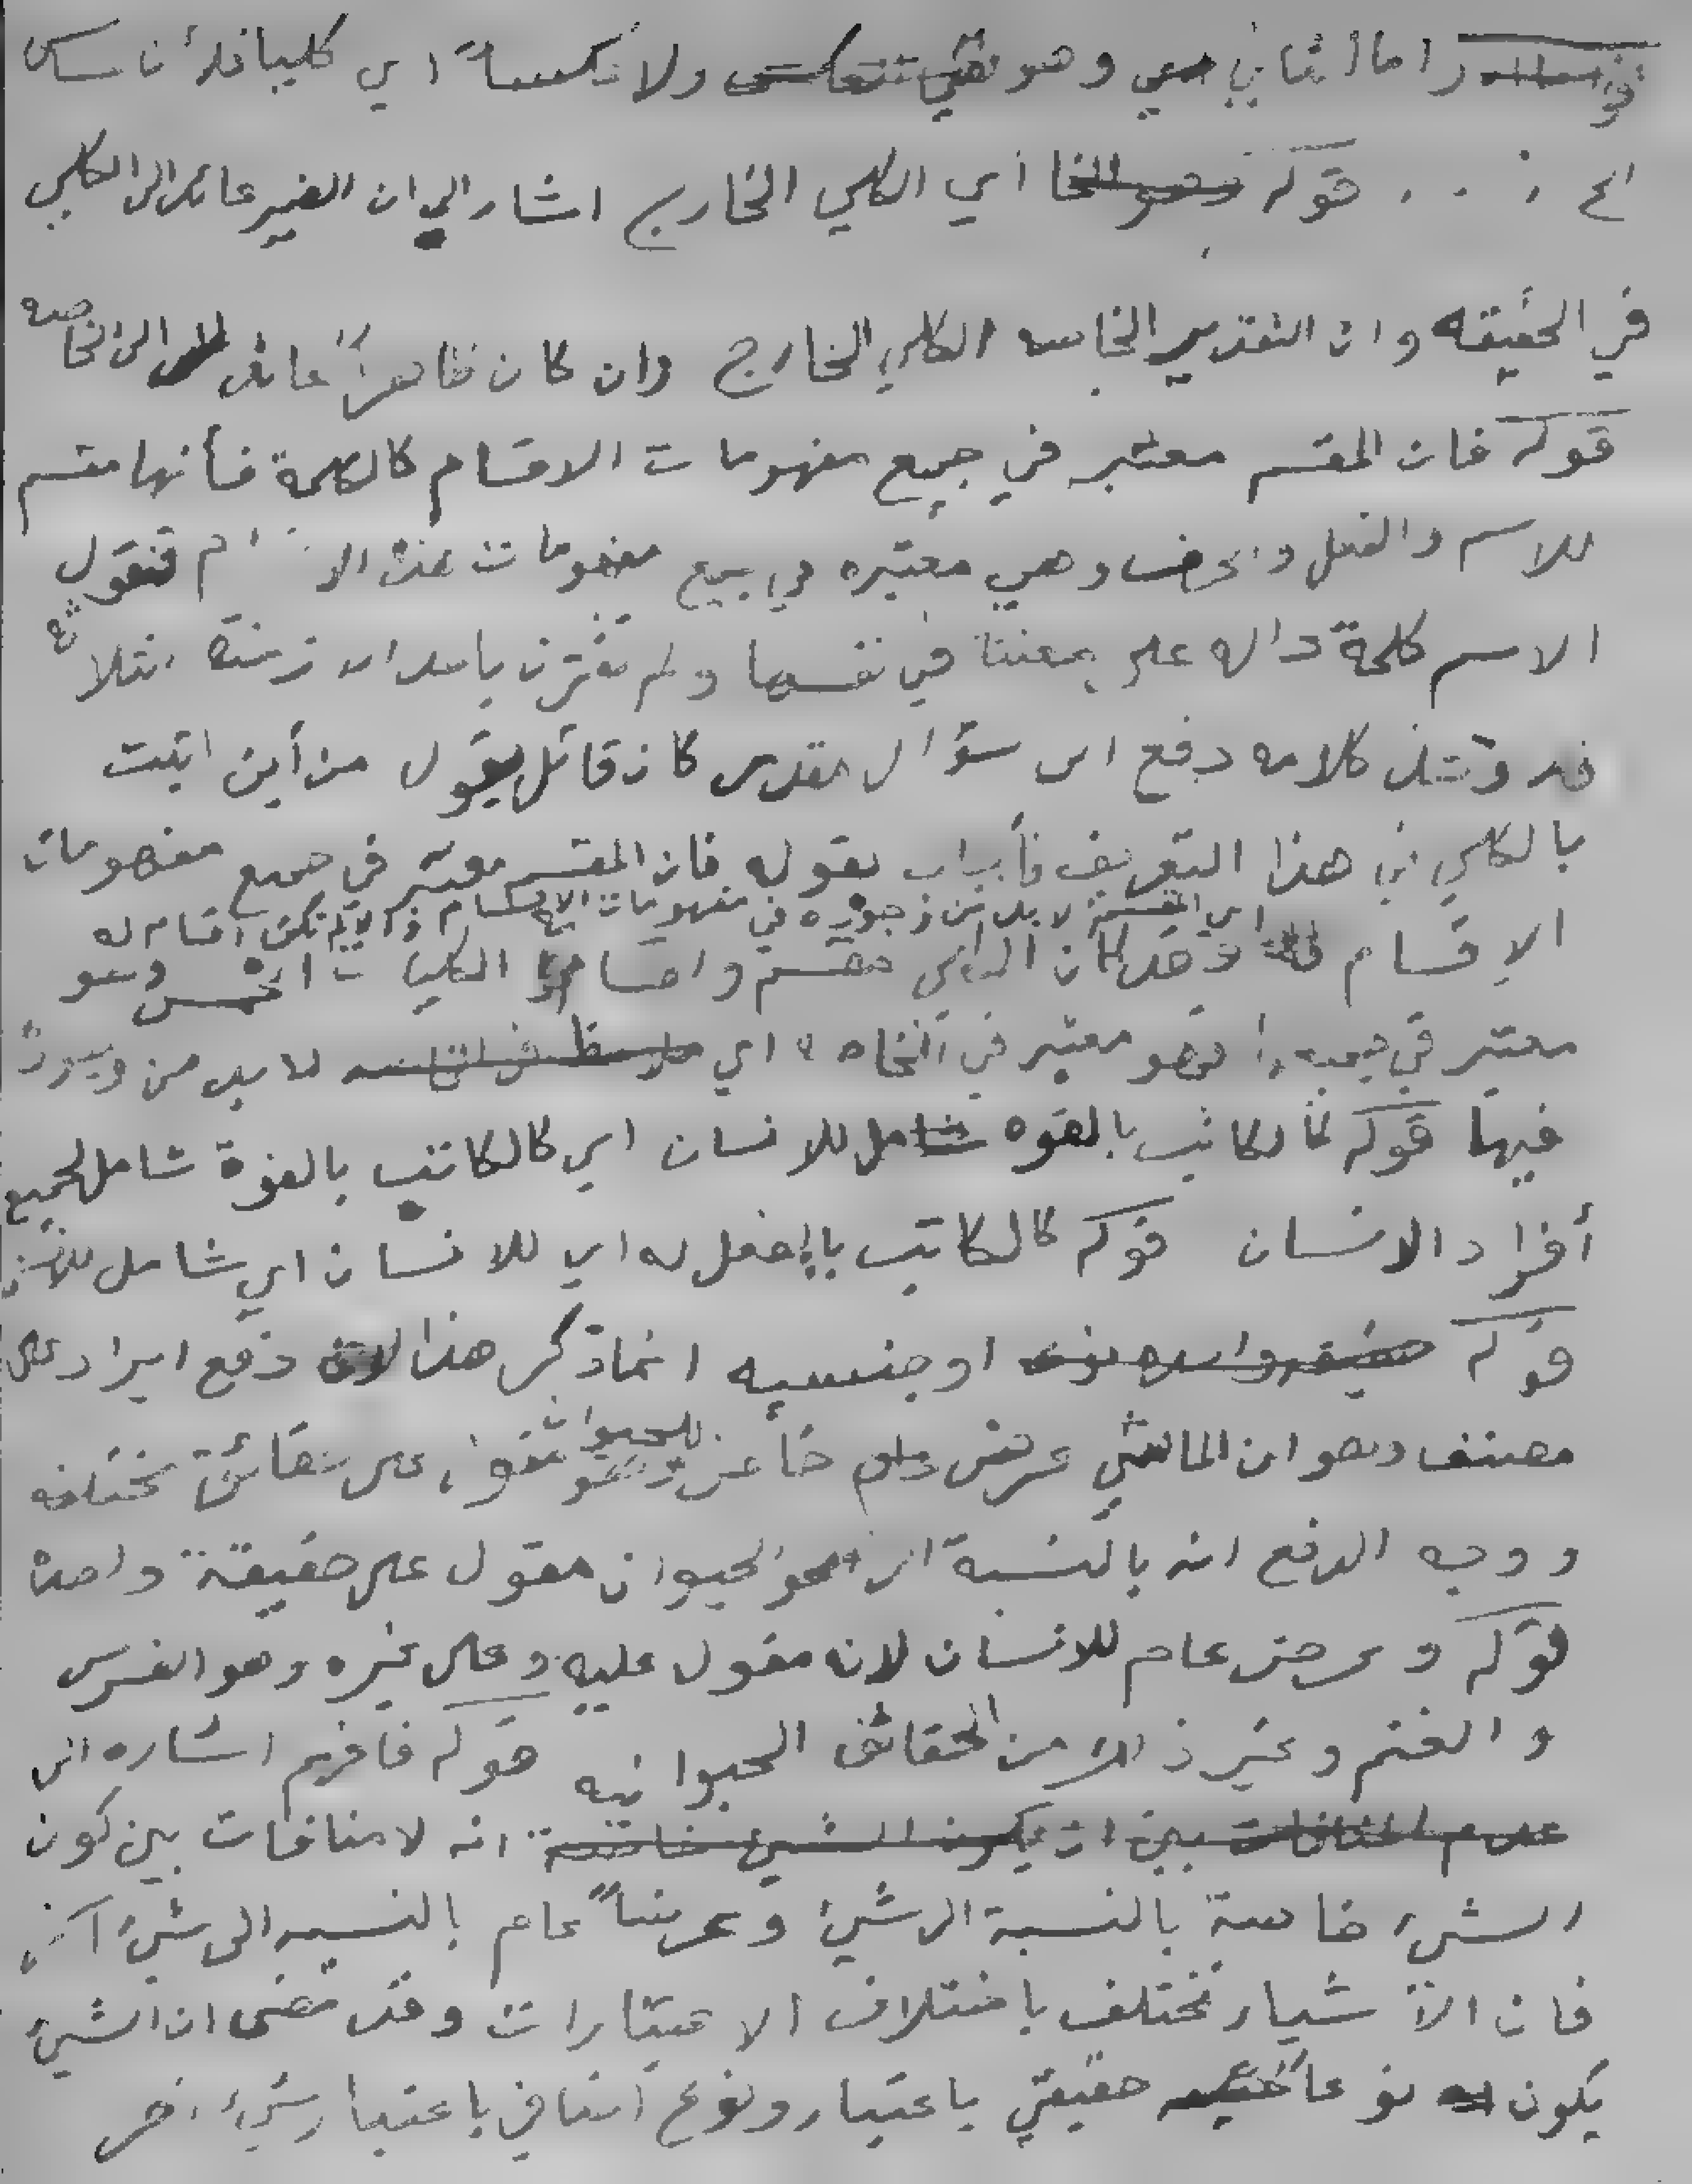 اما الثاني وهو ولا اي كليا
الخ قوله اي الكلي الخارج اشار الي ان الضمير عائد الى الكلي
في الحقيقه وان التقدير الخاصه الكلي الخارج وان كان ظاهراً عائد الى الخاصه
قوله فان المقسم معتبر في جميع مفهومات الاقسام كالكلمة فأنها مقسم
للاسم والفعل والحرف وهي معتبره في جميع مفهومات هذه الاقسام فنقول
الاسم كلمة داله على معنا في نفسها ولم تقترن باحد ازمنة الثلاثه
كلامه دفع سؤال مقدر كان قائل يقول من أين اتيت
بالكلي في هذا التعريف فأجاب بقوله فان المقسم معتبر في جميع مفهومات
اي المقسم لابد من وجوده في مفهومات الاقسام والا لم تكن اقسام له
الاقسام الكلي مقسم واقسامه الكليات الخمس وهو
معتبر في جميعها فهو معتبر في الخاصه اي لابد من وجوده
فيها قوله كالكاتب بالقوه شامل للانسان اي كالكاتب بالقوة شامل لجميع
أفراد الانسان قوله كالكاتب بالفعل له اي للانسان اي شامل
قوله او جنسيه انما ذكر هذا دفع ايراد على
مصنف وهو ان الماشي عرض خاص للحيوان وهو مقول على حقائق مختلفه
ووجه الدفع انه بالنسبة الى الحيوان مقول على حقيقة واحدة
قوله وعرض عام للانسان لانه مقول عليه وعلى غيره وهو الفرس
والغنم وغير ذالك من الحقائق الحيوانيه قوله فافهم اشاره الى
عدم المنافات بين ان يكون الشيئ خاصة انه لا منافات بين كون
الشيء خاصة بالنسبة الى شيئ وعرضاً عام بالنسبه الى شيئ آخر
فان الأشياء تختلف باختلاف الاعتبارات وقد مضى ان الشيئ
يكون نوعا حقيقي باعتبار ونوع اضافي باعتبار شيئ اخر